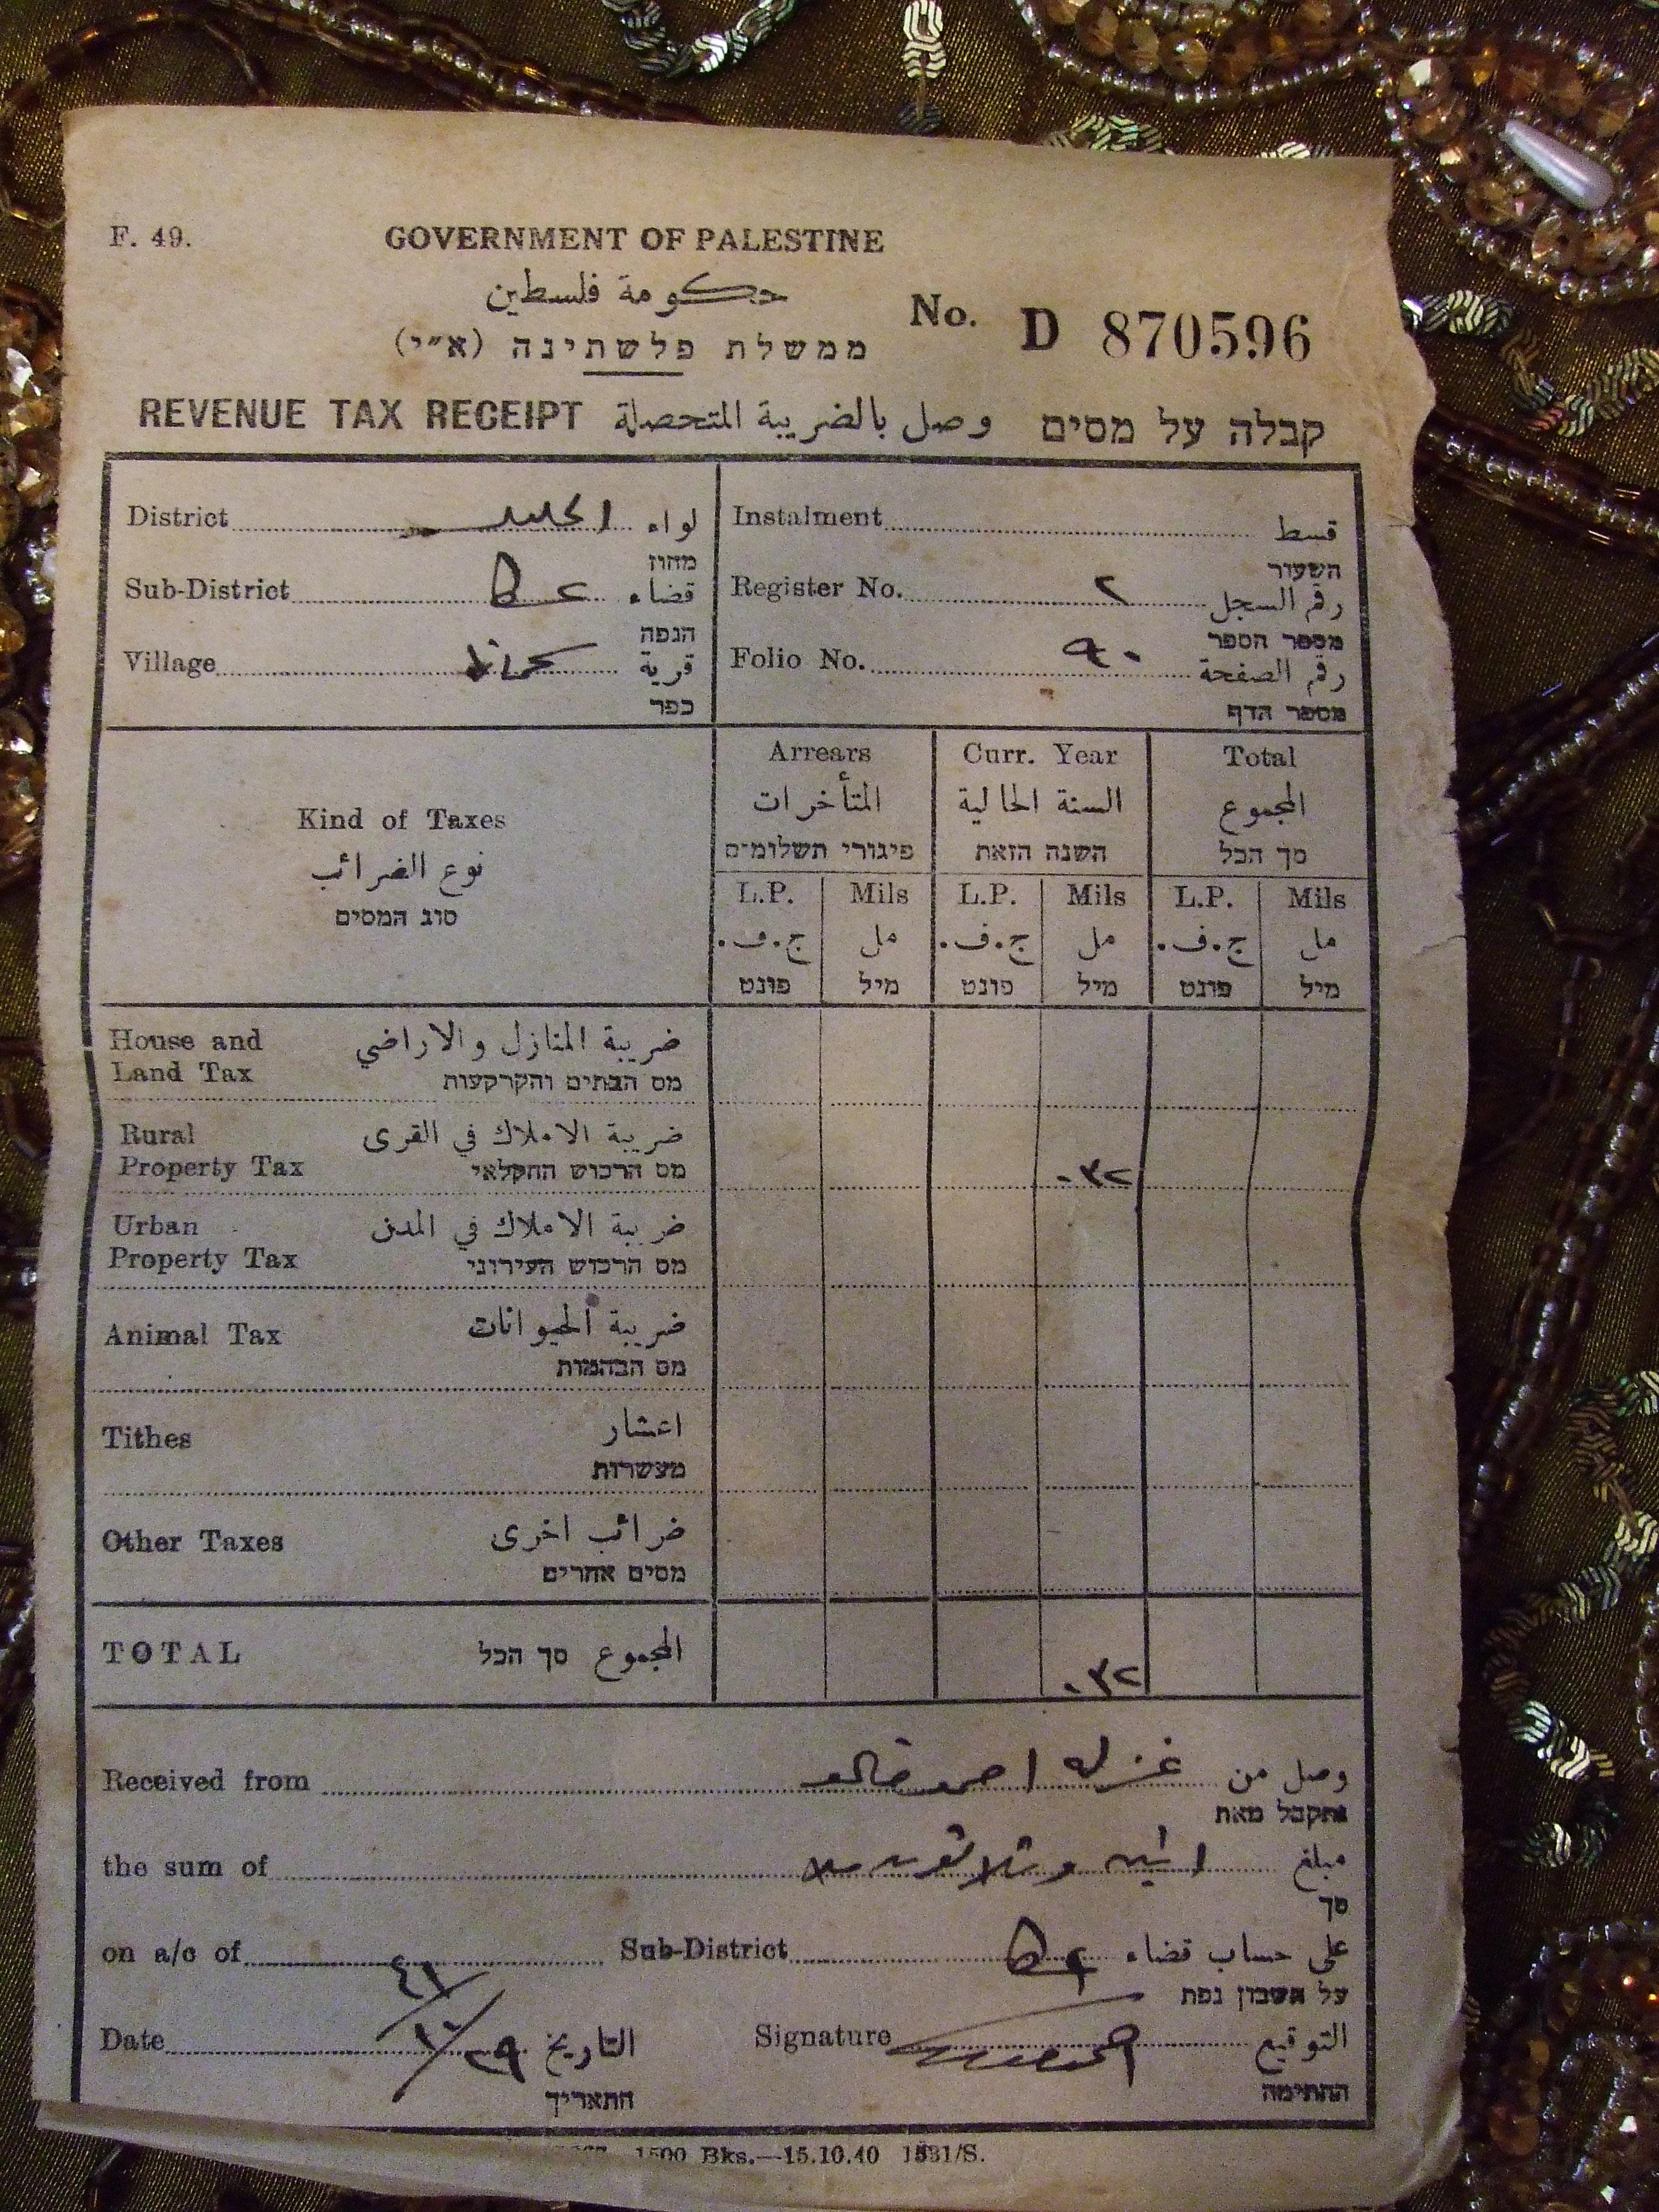 F. 49.
GOVERNMENT OF PALESTINE
حكومة فلسطين
ממשלת פלשתינה (א״י)
No. D 870596
REVENUE TAX RECEIPT وصل بالضريبة المتحصلة קבלה על מסים
District الخليل لواء
מחוז
Sub-District قضاء
הנפה
Village قرية
כפר
Instalment قسط
השעור
Register No. ٢ رقم السجل
מספר הספר
Folio No. ٩٠ رقم الصفحة
מספר הדף
Kind of Taxes
نوع الضرائب
סוג המסים
Arrears
المتأخرات
פיגורי תשלומים
Curr. Year
السنة الحالية
השנה הזאת
Total
المجموع
סך הכל
L.P. Mils L.P. Mils L.P. Mils
ج.ف. مل ج.ف. مل ج.ف. مل
פונט מיל פונט מיל פונט מיל
House and Land Tax ضريبة المنازل والاراضي
מס הבתים והקרקעות
Rural Property Tax ضريبة الاملاك في القرى
מס הרכוש החקלאי
٠٣٢
Urban Property Tax ضريبة الاملاك في المدن
מס הרכוש העירוני
Animal Tax ضريبة الحيوانات
מס הבהמות
Tithes اعشار
מעשרות
Other Taxes ضرائب اخرى
מסים אחרים
TOTAL المجموع סך הכל
٠٣٢
Received from احمد وصل من
נתקבל מאת
the sum of اثنين وثلاثون مل مبلغ
סך
on a/c of Sub-District على حساب قضاء
על חשבון נפת
Date ٢٩/١٠/٤١ التاريخ
התאריך
Signature التوقيع
החתימה
1500 Bks.—15.10.40 1531/S.